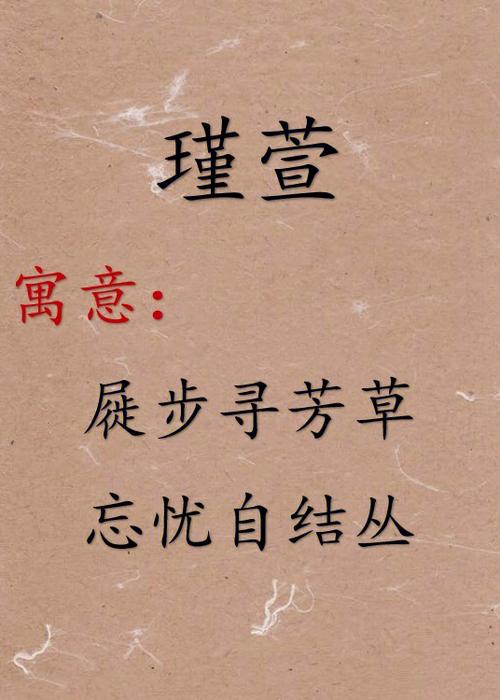 瑾萱
寓意：
屣步寻芳草
忘忧自结丛